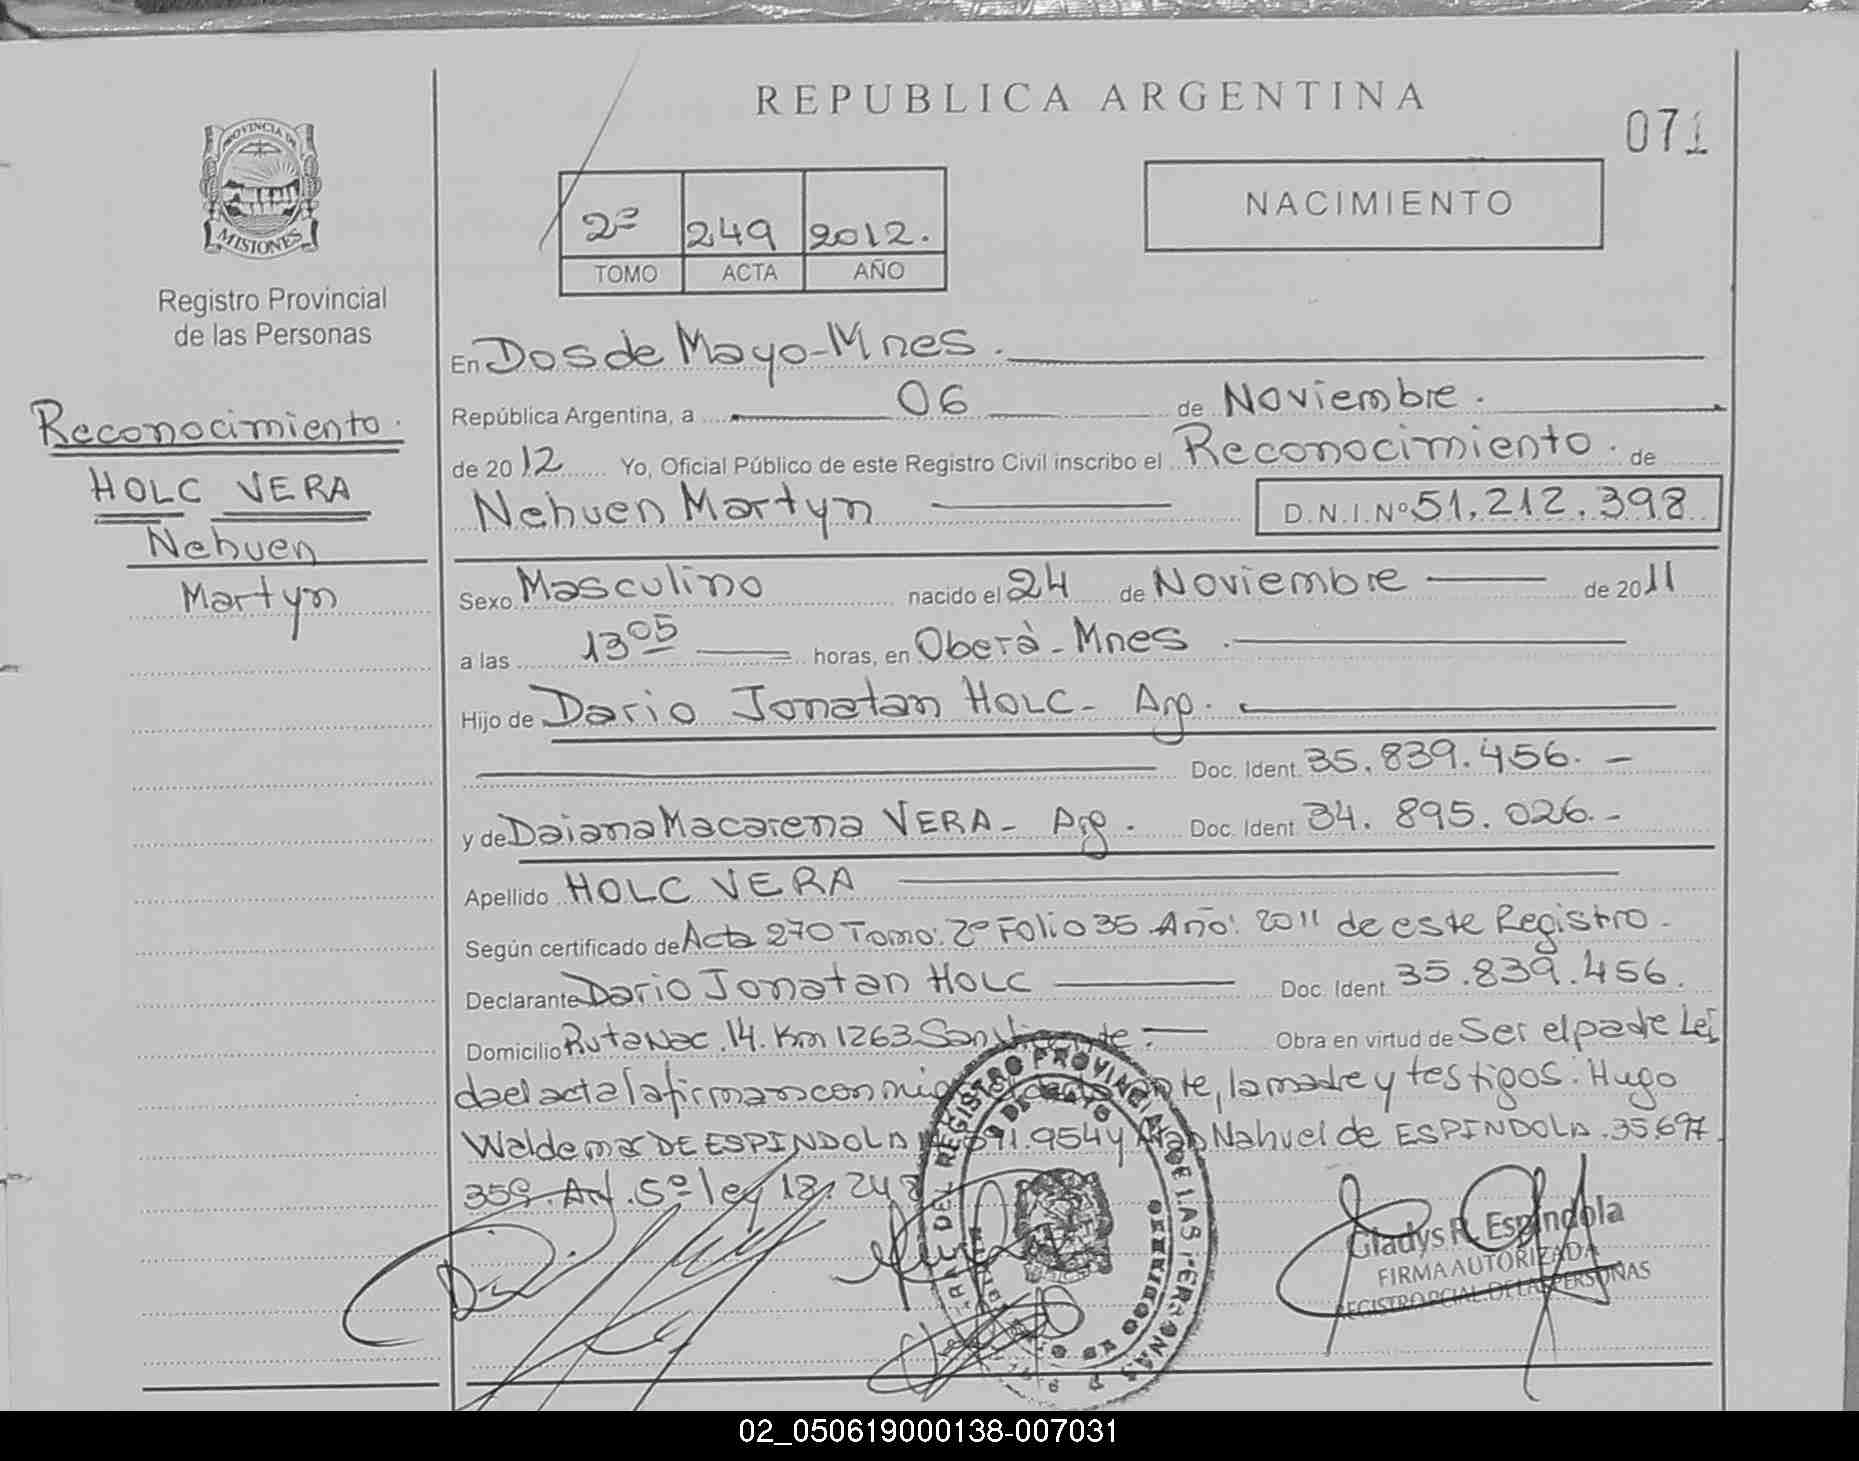 REPUBLICA ARGENTINA
071
PROVINCIA DE
MISIONES
Registro Provincial
de las Personas
2º 249 2012.
TOMO ACTA AÑO
NACIMIENTO
Reconocimiento.
HOLC VERA
Nehuen
Martyn
En Dos de Mayo - Mnes.
República Argentina, a 06 de Noviembre.
de 2012 Yo, Oficial Público de este Registro Civil inscribo el Reconocimiento. de
Nehuen Martyn D.N.I. Nº 51.212.398
Sexo Masculino nacido el 24 de Noviembre de 2011
a las 13 05 horas, en Oberà - Mnes.
Hijo de Dario Jonatan HOLC - Arg.
Doc. Ident. 35.839.456. -
y de Daiana Macarena VERA - Arg. Doc. Ident. 34.895.026. -
Apellido HOLC VERA
Según certificado de Acta 270 Tomo: 2º Folio 35 Año: 2011 de este Registro.
Declarante Dario Jonatan HOLC Doc. Ident. 35.839.456.
Domicilio Ruta Nac. 14. Km 1263 San Vicente. Obra en virtud de Ser el padre Lei
da el acta la firman conmigo el declarante, la madre y testigos. Hugo
Waldemar DE ESPINDOLA 91.954 y Nahuel de ESPINDOLA. 35.697.
359. Art. 5º ley 18.248
REGISTRO PROVINCIAL DE LAS PERSONAS
Gladys R. Espindola
FIRMA AUTORIZADA
REGISTRO PCIAL. DE LAS PERSONAS
02_050619000138-007031